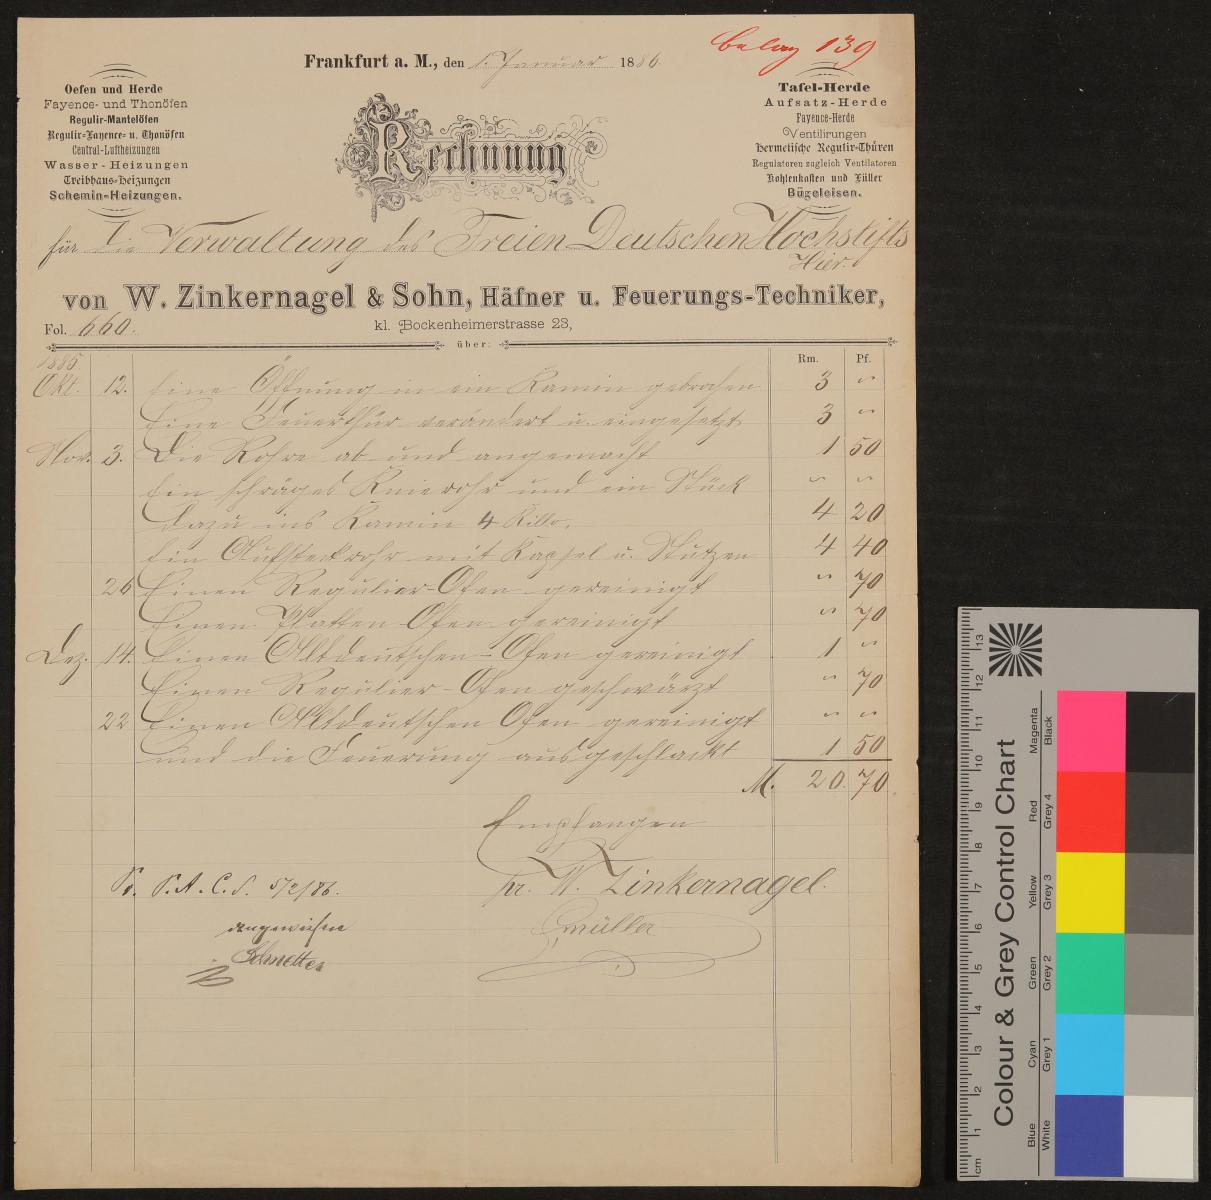 Belag 139
Frankfurt a. M., den 1. Januar 1886.
Oefen und Herde
Fayence- und Thonöfen
Regulir-Mantelöfen
Regulir-Fayence- u. Thonöfen
Central-Luftheizungen
Wasser-Heizungen
Treibhaus-Heizungen
Schemin-Heizungen.
Rechnung
Tafel-Herde
Aufsatz-Herde
Fayence-Herde
Ventilirungen
hermetische Regulir-Thüren
Regulatoren zugleich Ventilatoren
Kohlenkasten und Füller
Bügeleisen.
für Die Verwaltung des Freien Deutschen Hochstifts
Hier.
von W. Zinkernagel & Sohn, Häfner u. Feuerungs-Techniker,
Fol. 660. kl. Bockenheimerstrasse 23,
über:
Rm. Pf.
1885.
Okt. 12. Eine Öffnung in ein Kamin gebrochen 3 "
Eine Feuerthür verändert u. eingesetzt 3 "
Nov. 3. Die Rohre ab und angemacht 1 50
Ein schräges Knierohr und ein Stück " "
dazu ins Kamin 4 Killo. 4 20
Ein Aufsteckrohr mit Kapsel u. Stutzen 4 40
26 Einen Regulier-Ofen gereinigt " 70
Einen Platten Ofen gereinigt " 70
Dez. 14. Einen Altdeutschen-Ofen gereinigt 1 "
Einen Regulier-Ofen geschwärzt " 70
22 Einen Altdeutschen Ofen gereinigt " "
und die Feuerung ausgeschlackt 1 50
M. 20. 70.
Empfangen
pr. W. Zinkernagel.
Gmüller
S. A. C. S. 5/2/86.
angewiesen
Colour & Grey Control Chart
Magenta
Black
Red
Grey 4
Yellow
Grey 3
Green
Grey 2
Cyan
Grey 1
Blue
White
cm 1 2 3 4 5 6 7 8 9 10 11 12 13